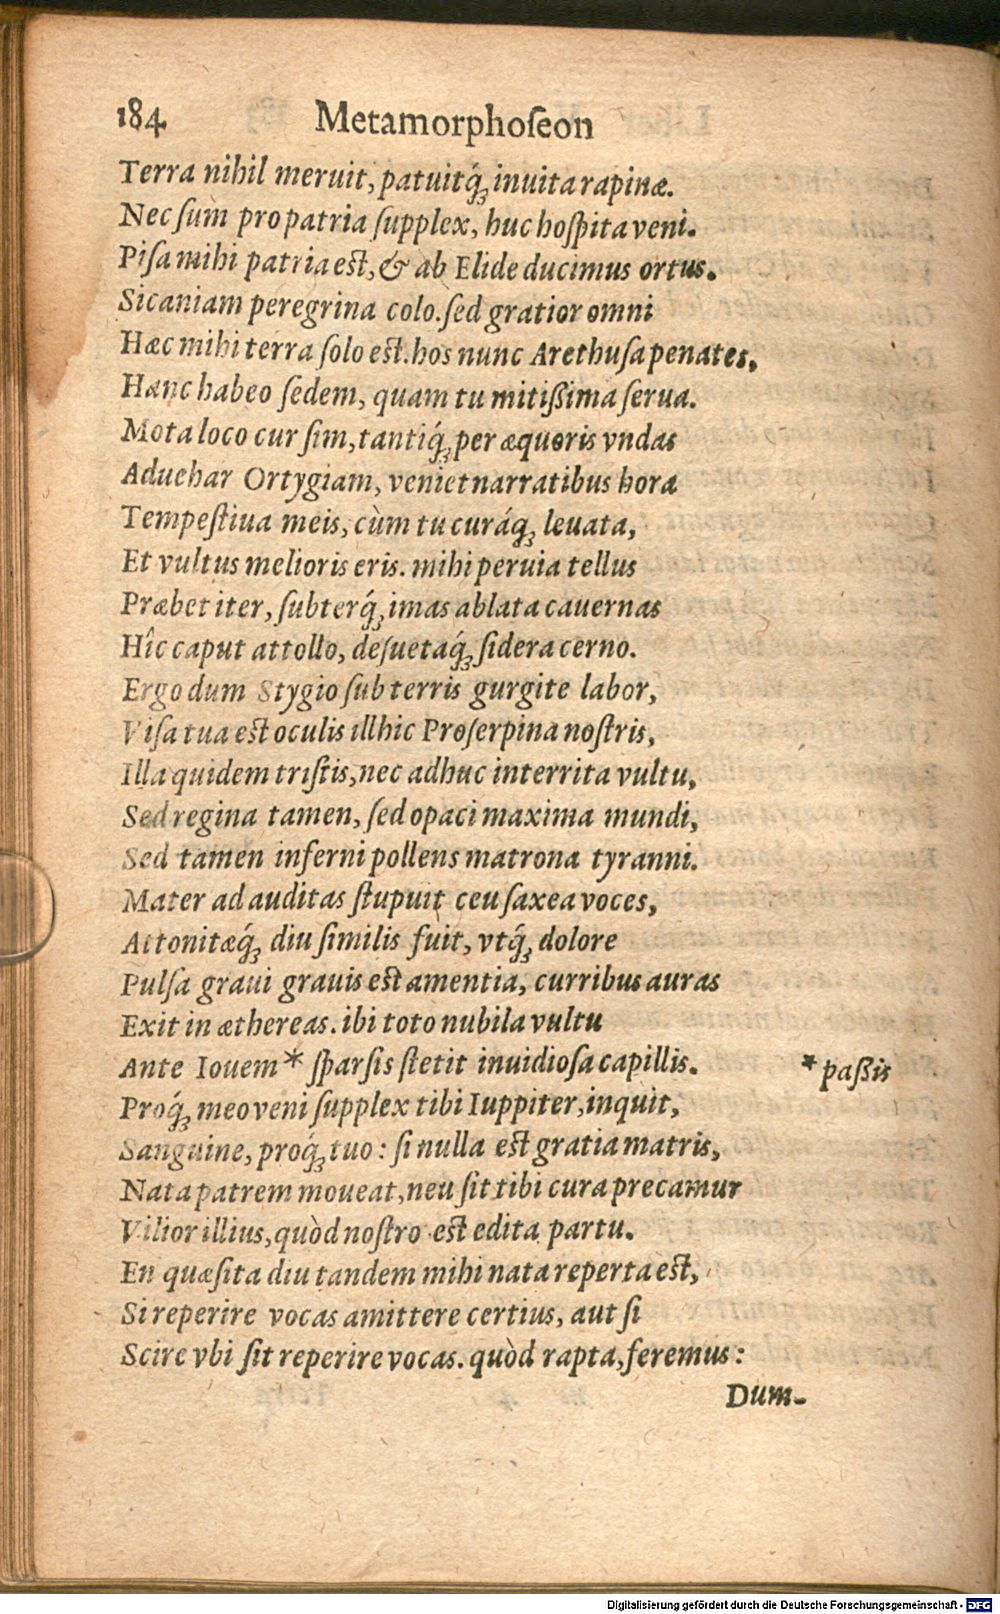 184 Metamorphoſeon
Terra nihil meruit, patuitq́ꝫ inuita rapinæ.
Nec ſum pro patria ſupplex, huc hoſpita veni.
Piſa mihi patria est, & ab Elide ducimus ortus.
Sicaniam peregrina colo. ſed gratior omni
Hæc mihi terra ſolo est. hos nunc Arethuſa penates,
Hanc habeo ſedem, quam tu mitißima ſerua.
Mota loco cur ſim, tantiq́ꝫ per æquoris vndas
Aduehar Ortygiam, veniet narratibus hora
Tempeſtiua meis, cùm tu curáqꝫ leuata,
Et vultus melioris eris. mihi peruia tellus
Præbet iter, ſubterq́ꝫ imas ablata cauernas
Hîc caput attollo, deſuetaq́ꝫ ſidera cerno.
Ergo dum Stygio ſub terris gurgite labor,
Viſa tua est oculis illhic Proſerpina noſtris,
Illa quidem triſtis, nec adhuc interrita vultu,
Sed regina tamen, ſed opaci maxima mundi,
Sed tamen inferni pollens matrona tyranni.
Mater ad auditas ſtupuit ceu ſaxea voces,
Attonitæq́ꝫ diu ſimilis fuit, vtq́ꝫ dolore
Pulſa graui grauis est amentia, curribus auras
Exit in æthereas. ibi toto nubila vultu
Ante Iouem* ſparſis ſtetit inuidioſa capillis. * paßis
Proq́ꝫ meo veni ſupplex tibi Iuppiter, inquit,
Sanguine, proq́ꝫ tuo: ſi nulla est gratia matris,
Nata patrem moueat, neu ſit tibi cura precamur
Vilior illius, quòd noſtro est edita partu.
En quæſita diu tandem mihi nata reperta est,
Si reperire vocas amittere certius, aut ſi
Scire vbi ſit reperire vocas. quòd rapta, feremus:
Dum-
Digitalisierung gefördert durch die Deutsche Forschungsgemeinschaft - DFG